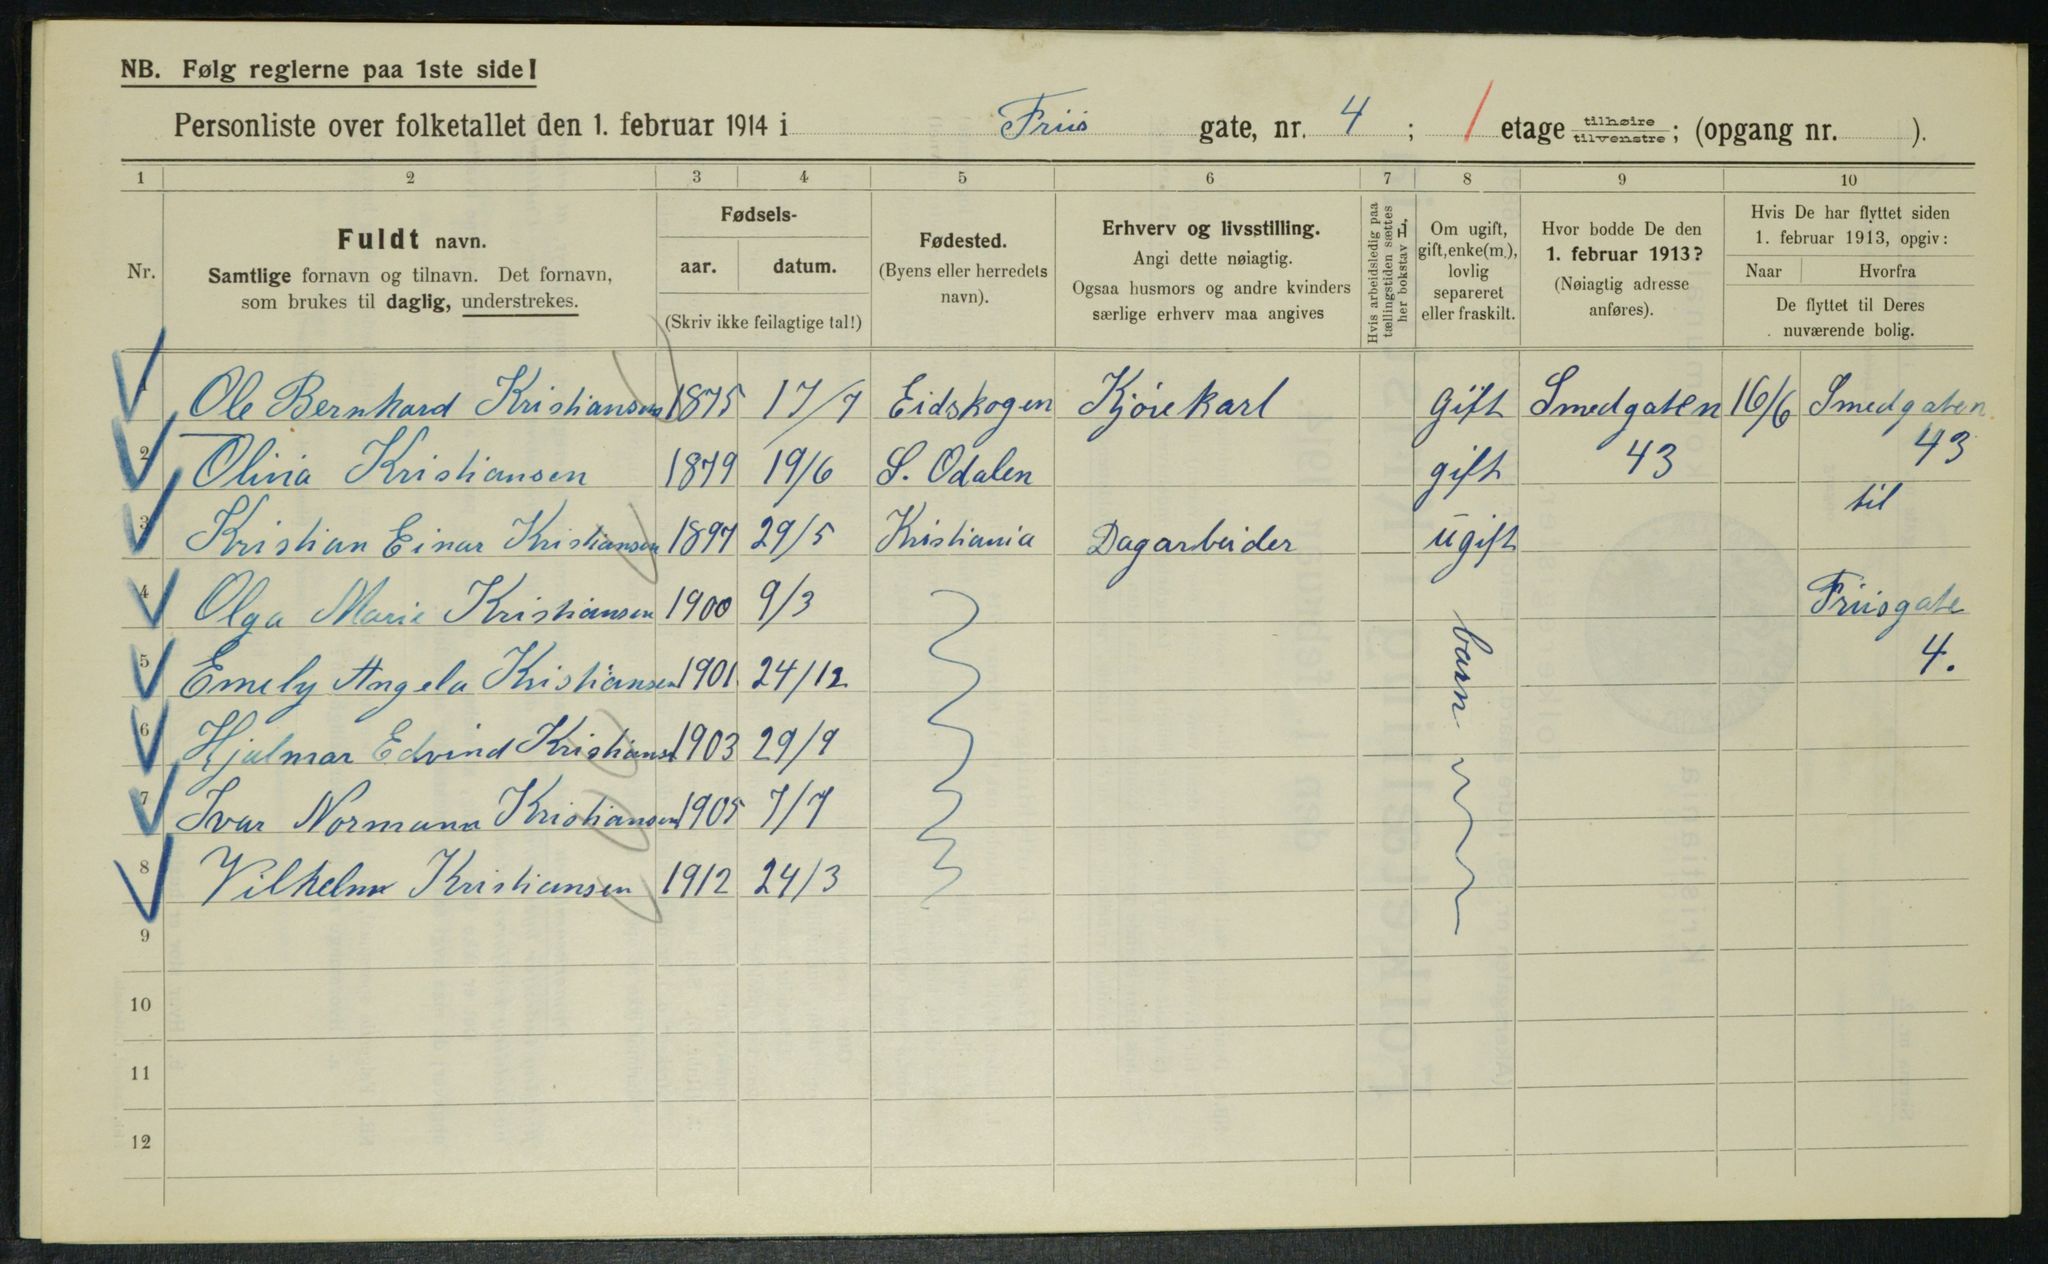 NB. Følg reglerne paa 1ste side!
Personliste over folketallet den 1. februar 1914 i Friis gate, nr. 4 ; 1 etage tilhøire tilvenstre; (opgang nr. ).
1 2 3 4 5 6 7 8 9 10
Nr.
Fuldt navn.
Samtlige fornavn og tilnavn. Det fornavn,
som brukes til daglig, understrekes.
Fødsels-
aar. datum.
(Skriv ikke feilagtige tal!)
Fødested.
(Byens eller herredets
navn).
Erhverv og livsstilling.
Angi dette nøiagtig.
Ogsaa husmors og andre kvinders
særlige erhverv maa angives
Hvis arbeidsledig paa
tællingstiden sættes
her bokstav L,
Om ugift,
gift, enke(m.),
lovlig
separeret
eller fraskilt.
Hvor bodde De den
1. februar 1913?
(Nøiagtig adresse
anføres).
Hvis De har flyttet siden
1. februar 1913, opgiv:
Naar Hvorfra
De flyttet til Deres
nuværende bolig.
1 Ole Bernhard Kristiansen 1875 17/7 Eidskogen Kjørekarl gift Smedgaten 16/6 Smedgaten
2 Olivia Kristiansen 1879 19/6 S. Odalen gift 43 43
til
3 Kristian Einar Kristiansen 1897 29/5 Kristiania Dagarbeider ugift
4 Olga Marie Kristiansen 1900 9/3 barn Friisgate
5 Emely Angela Kristiansen 1901 24/12 4.
6 Hjalmar Edvind Kristianse 1903 29/9
7 Ivar Normann Kristiansen 1905 7/7
8 Vilhelm Kristiansen 1912 24/3
9
10
11
12